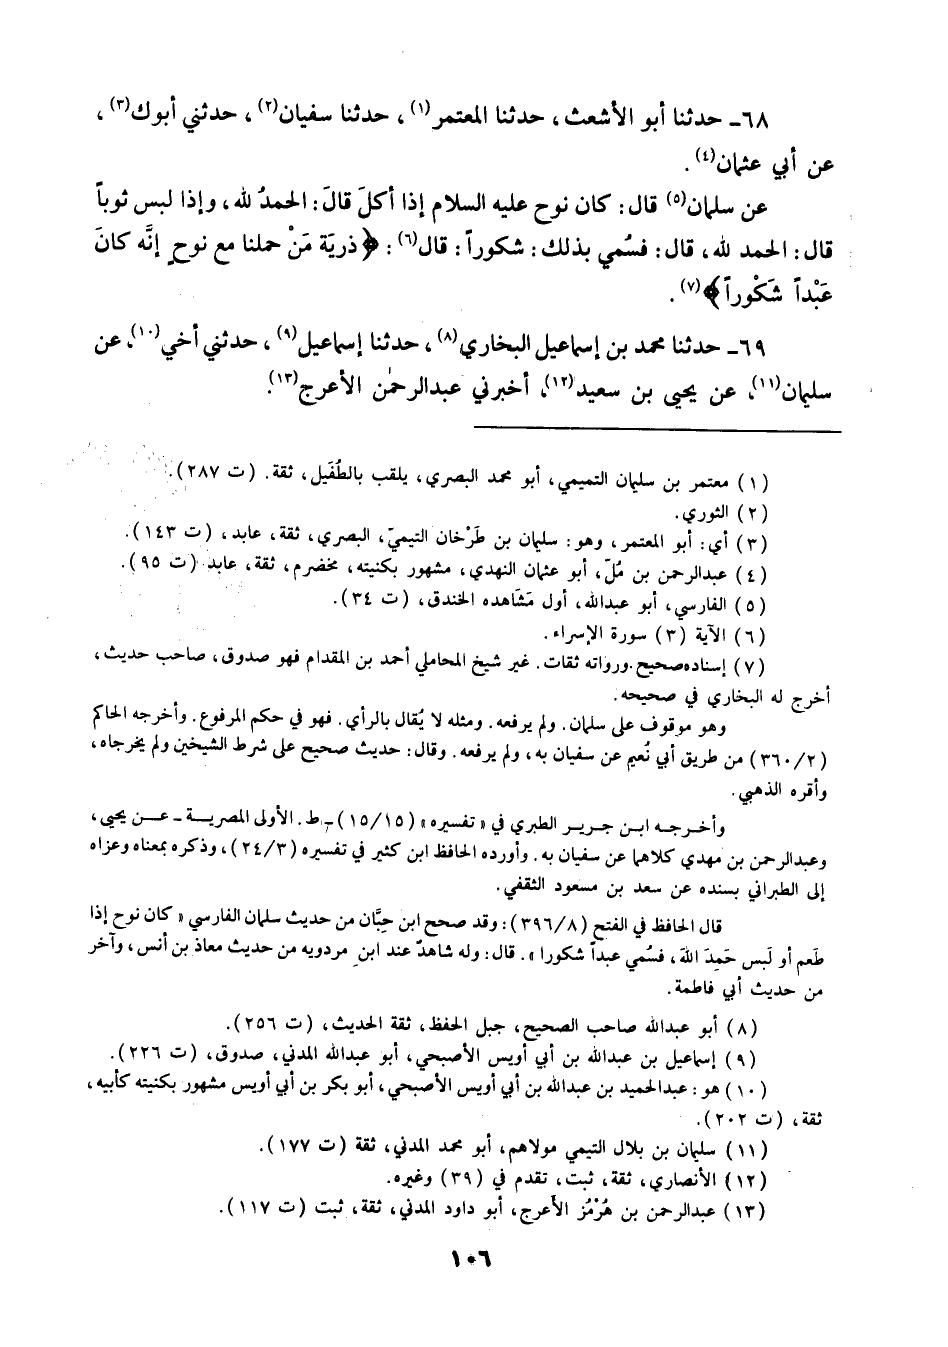 ٦٨ـ حدثنا أبو الأشعث، حدثنا المعتمر(١)، حدثنا سفيان(٢)، حدثني أبوك(٣)،
عن أبي عثمان(٤).
عن سلمان(٥) قال: كان نوح عليه السلام إذا أكلَ قالَ: الحمدُ لله، وإذا لبس ثوباً
قال: الحمد لله، قال: فسُمي بذلك: شكوراً: قال(٦): ﴿ذريَة مَنْ حملنا مع نوحٍ إنَّه كانَ
عَبْداً شَكْوراً﴾(٧).
٦٩ـ حدثنا محمد بن إسماعيل البخاري(٨)، حدثنا إسماعيل(٩)، حدثني أخي(١٠)، عن
سليمان(١١)، عن يحيى بن سعيد(١٢)، أخبرني عبدالرحمٰن الأعرج(١٣).
(١) معتمر بن سليمان التميمي، أبو محمد البصري، يلقب بالطُفَيل، ثقة. (ت ٢٨٧).
(٢) الثوري.
(٣) أي: أبو المعتمر، وهو: سليمان بن طَرْخان التيميّ، البصري، ثقة، عابد، (ت ١٤٣).
(٤) عبدالرحمن بن مُلّ، أبو عثمان النهدي، مشهور بكنيته، مخضرم، ثقة، عابد (ت ٩٥).
(٥) الفارسي، أبو عبدالله، أول مَشَاهده الخندق، (ت ٣٤).
(٦) الآية (٣) سورة الإسراء.
(٧) إسناده صحيح. ورواته ثقات. غير شيخ المحاملي أحمد بن المقدام فهو صدوق، صاحب حديث،
أخرج له البخاري في صحيحه.
وهو موقوف على سلمان. ولم يرفعه. ومثله لا يُقال بالرأي. فهو في حكم المرفوع. وأخرجه الحاكم
(٣٦٠/٢) من طريق أبي نُعيم عن سفيان به، ولم يرفعه. وقال: حديث صحيح على شرط الشيخين ولم يخرجاه،
وأقره الذهبي.
وأخرجه ابن جرير الطبري في «تفسيره» (١٥/١٥) ـ ط. الأولى المصرية ـ عن يحيى،
وعبدالرحمن بن مهدي كلاهما عن سفيان به. وأورده الحافظ ابن كثير في تفسيره (٢٤/٣)، وذكره بمعناه وعزاه
إلى الطبراني بسنده عن سعد بن مسعود الثقفي.
قال الحافظ في الفتح (٣٩٦/٨): وقد صحح ابن حِبَّان من حديث سلمان الفارسي «كان نوح إذا
طَعم أو لَبس حَمِدَ اللهَ، فسُمي عبداً شكورا». قال: وله شاهدٌ عند ابن مردويه من حديث معاذ بن أنس، وآخر
من حديث أبي فاطمة.
(٨) أبو عبدالله صاحب الصحيح، جبل الحفظ، ثقة الحديث، (ت ٢٥٦).
(٩) إسماعيل بن عبدالله بن أبي أويس الأصبحي، أبو عبدالله المدني، صدوق، (ت ٢٢٦).
(١٠) هو: عبدالحميد بن عبدالله بن أبي أويس الأصبحي، أبو بكر بن أبي أويس مشهور بكنيته كأبيه،
ثقة، (ت ٢٠٢).
(١١) سليمان بن بلال التيمي مولاهم، أبو محمد المدني، ثقة (ت ١٧٧).
(١٢) الأنصاري، ثقة، ثبت، تقدم في (٣٩) وغيره.
(١٣) عبدالرحمن بن هُرْمُز الأعرج، أبو داود المدني، ثقة، ثبت (ت ١١٧).
١٠٦